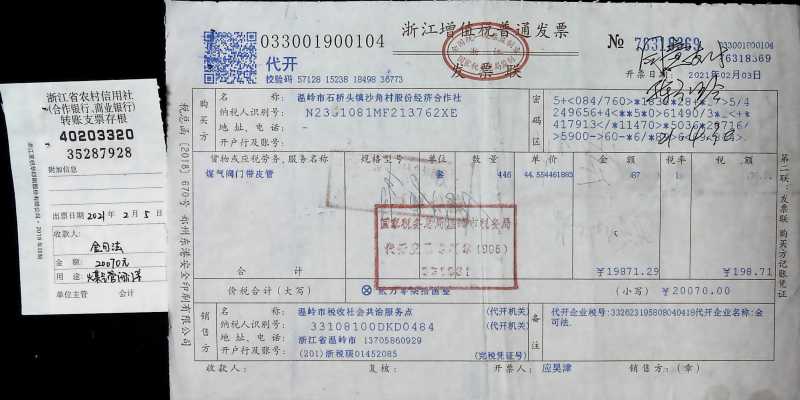 浙江省农村信用社
(合作银行、商业银行)
转账支票存根
40203320
35287928
附加信息
出票日期 2021 年 2 月 5 日
收款人:
金 额: 20070元
用 途:
单位主管 会计
033001900104
浙江增值税普通发票
发票联
代开
校验码 57128 15238 18498 36773
№
033001900104
76318369
开票日期: 2021年02月03日
税总函〔2018〕670号
购买方
名 称: 温岭市石桥头镇沙角村股份经济合作社
纳税人识别号: N2331081MF213762XE
地 址、电 话: -
开户行及账号: -
密码区
货物或应税劳务、服务名称 规格型号 单位 数 量 单 价 金 额 税率 税 额
煤气阀门带皮管 套 446 44.554461883
代开发票专用章
合 计 ￥19871.29 ￥198.71
价税合计(大写) ⊗ 贰万零柒拾圆整 (小写) ￥20070.00
销售方
名 称: 温岭市税收社会共治服务点 (代开机关)
纳税人识别号: 33108100DKD0484 (代开机关)
地 址、电 话: 浙江省温岭市 13705860929
开户行及账号: (201) 浙税琐01452085 (完税凭证号)
备注
代开企业税号:332623195808040418代开企业名称:金
可法.
收款人: 复核: 开票人: 应昊津 销售方:(章)
第二联:发票联 购买方记账凭证